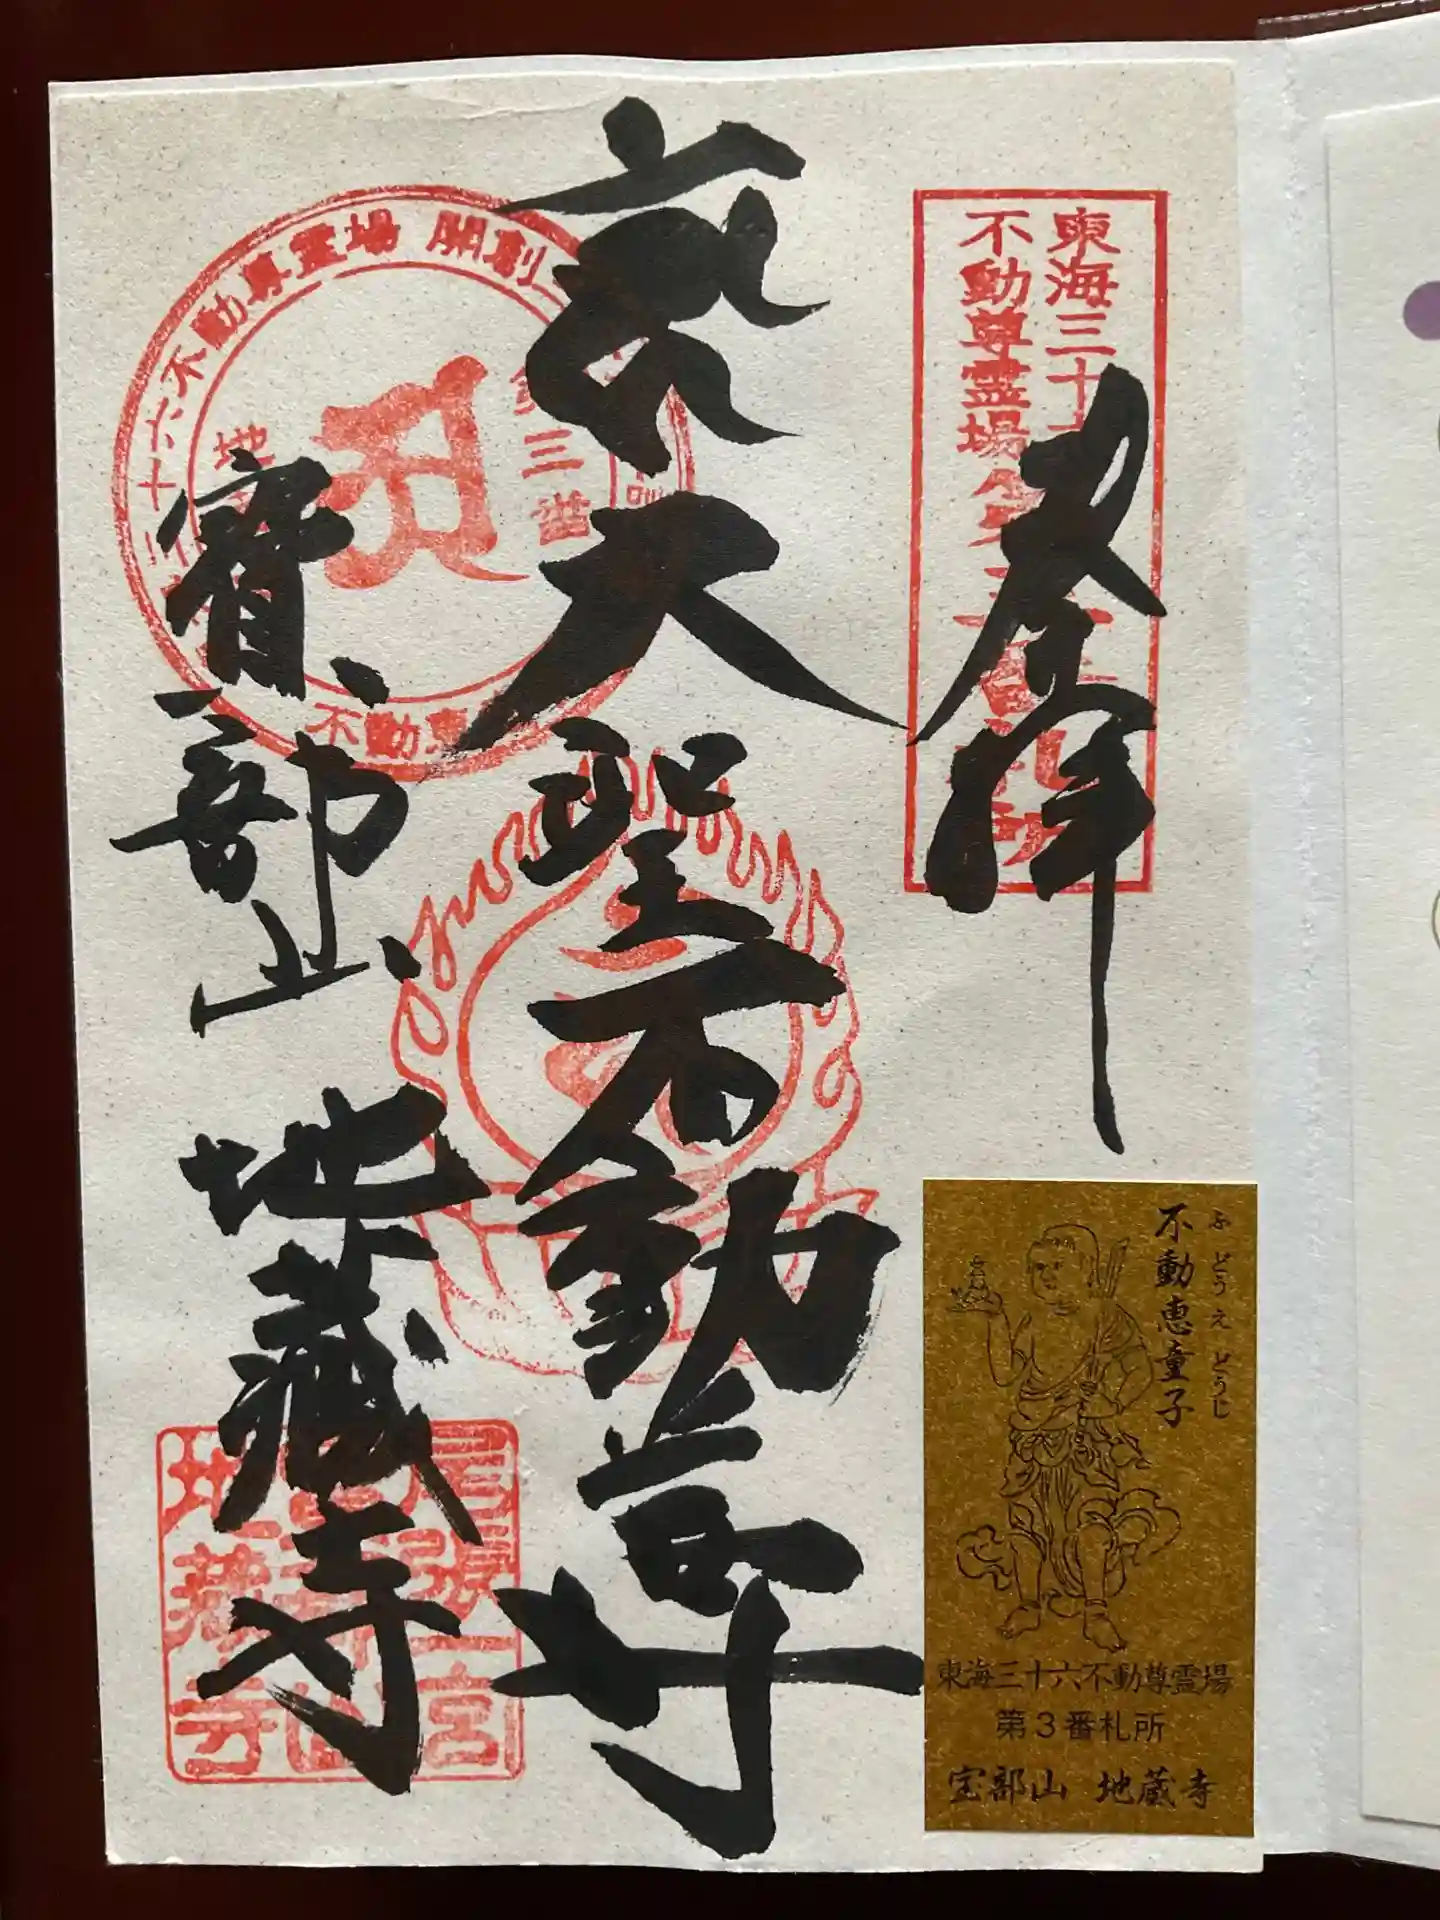 東海三十
不動尊霊場
奉拝
大聖不動尊
不動尊霊場 開創
第三番
不動恵
寳部山 地蔵寺
尾張一宮
地蔵寺
不動恵童子
ふどうえどうじ
東海三十六不動尊霊場
第3番札所
宝部山 地蔵寺